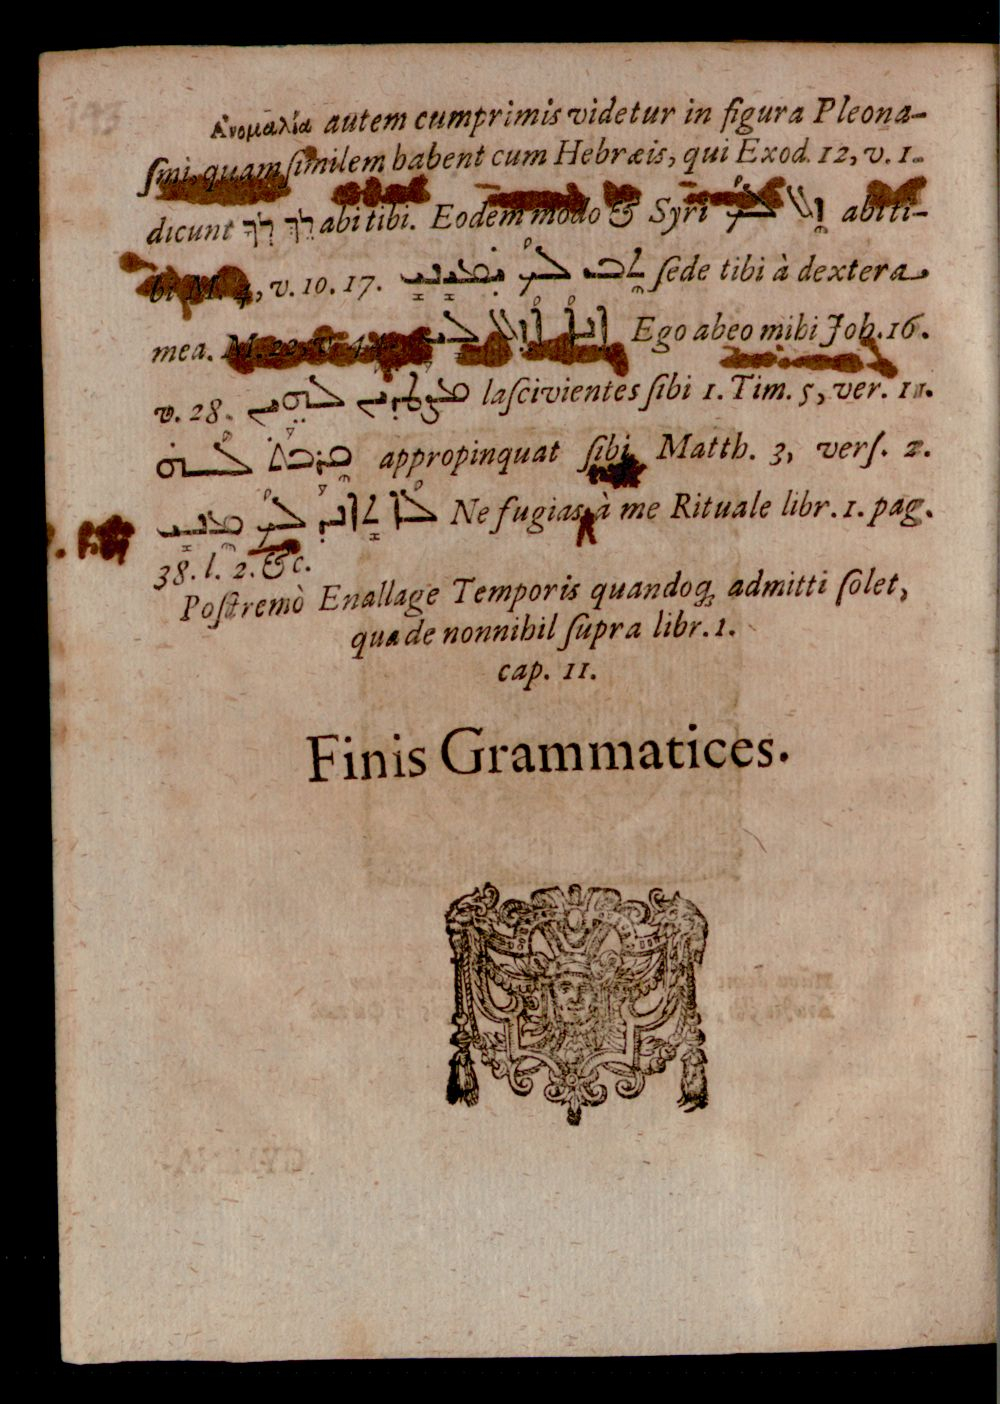 Ἀνομαλία autem cumprimis videtur in figura Pleona-
ſmi, quam ſimilem habent cum Hebræis, qui Exod. 12, v. 1.
dicunt לֶךְ לְךָ abi tibi. Eodem modo & Syri ܙܠ ܠܟ abi ti-
bi M. 4, v. 10. 17. ܬܒ ܠܟ ܡܢ ܝܡܝܢܝ ſede tibi à dextera
mea. M. 22, v. 44. ܐܢܐ ܐܙܠ ܠܝ Ego abeo mihi Joh. 16.
v. 28. ܠܗܝܢ laſcivientes ſibi 1. Tim. 5, ver. 11.
ܩܪܒܬ ܠܗ appropinquat ſibi Matth. 3, verſ. 2.
ܠܟ ܡܢܝ Ne fugias à me Rituale libr. 1. pag.
38. l. 2. &c.
Poſtremò Enallage Temporis quandoq; admitti ſolet,
qua de nonnihil ſupra libr. 1.
cap. 11.
Finis Grammatices.